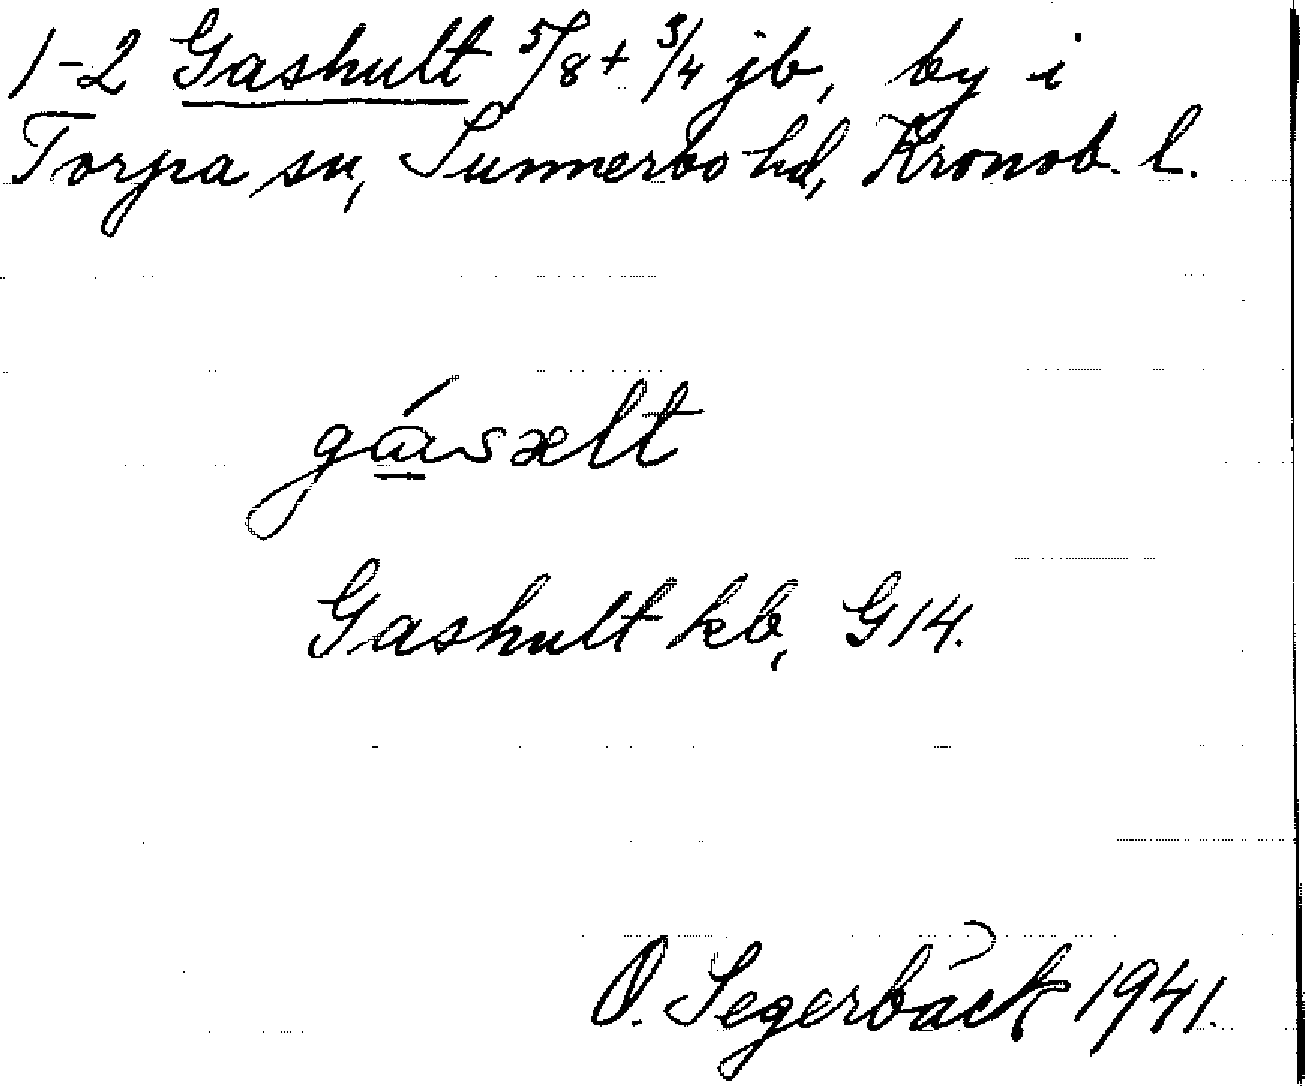 1-2 Gashult 5/8 + 3/4 jb, by i
Torpa sn, Sunnerbo hd, Kronob. l.
gá̱sælt
Gashult kb, G14.
O. Segerbäck 1941.